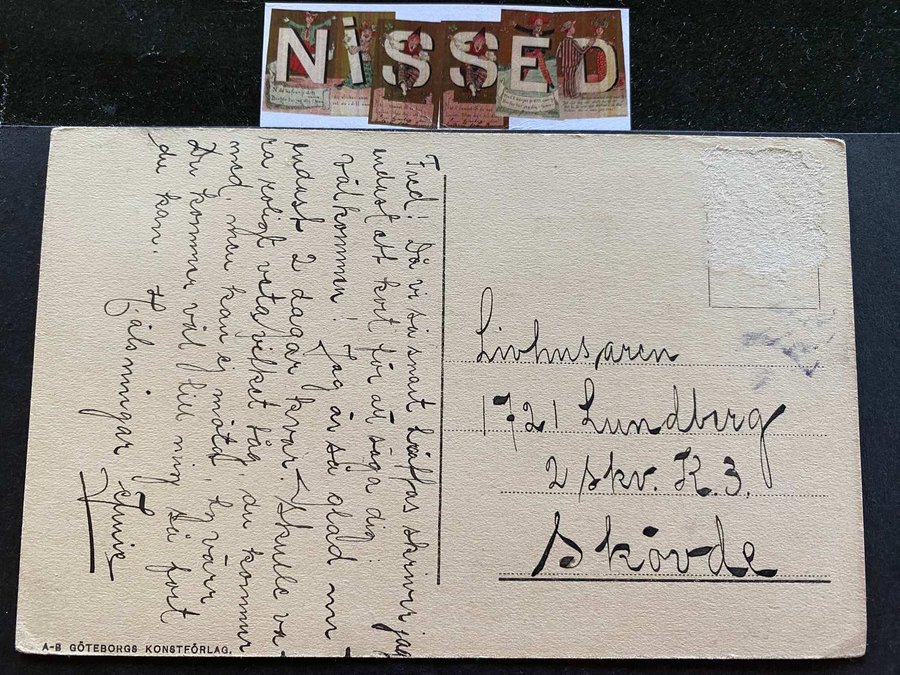 NISSED
Fred! Då vi så snart träffas skriver jag
endast ett kort för att säga dig
välkommen! Jag är så glad nu
endast 2 dagar kvar. Skulle va-
ra roligt veta vilket tåg, du kommer
med, men kan ej möta, tyvärr
Du kommer väl till mig så fort
du kan. Hjälsningar
Livhusaren
1721 Lundberg
2 skv. K. 3.
Skövde
A-B GÖTEBORGS KONSTFÖRLAG.